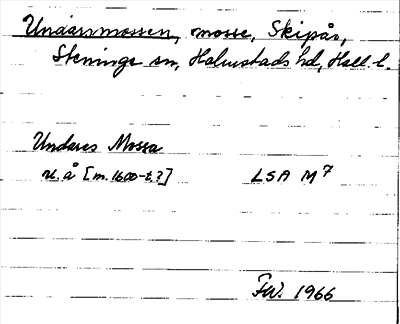 Undarsmossen, mosse, Skipås,
Steninge sn, Halmstads hd, Hall. l.
Undares Mossa
u. å [m. 1600-t.?] LSA M7
F.W. 1966